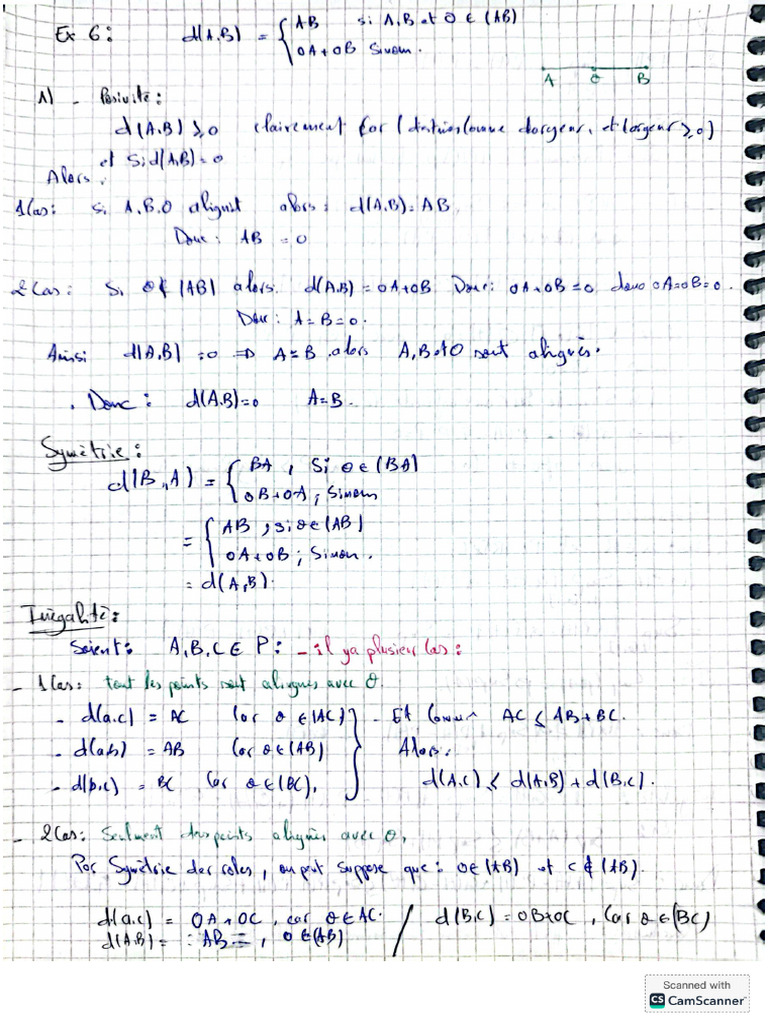 Ex 6: d(A,B) = { AB si A,B et O ∈ (AB)
OA+OB Sinon.
A O B
1) - Posivité:
d(A,B) ≥ 0 clairement car ( et ≥ 0)
et Si d(A,B) = 0
Alors.
1 Cas: Si A,B,O alignét alors: d(A,B) = AB
Donc: AB = 0
2 Cas: Si O ∉ (AB) alors. d(A,B) = OA+OB Donc: OA+OB = 0 donc OA=OB=0.
Donc: A = B = 0.
Ainsi d(A,B) = 0 ⇒ A = B alors A,B et O sont alignés.
. Donc: d(A,B)=0 A=B.
Symètrie:
d(B,A) = { BA , Si O ∈ (BA)
OB+OA ; Sinon
= { AB , si O ∈ (AB)
OA+OB ; Sinon.
= d(A,B).
Inégalité:
Soient: A,B,C ∈ P: - il ya plusieur Cas:
- 1 Cas: tout les points sont alignés avec O.
- d(a,c) = AC Car O ∈ (AC) } - Et Comme AC ≤ AB+BC.
- d(a,b) = AB Car O ∈ (AB) Alors:
- d(b,c) = BC Car O ∈ (BC), d(A,C) ≤ d(A,B) + d(B,C).
- 2 Cas: Seulment des points alignés avec O,
Par Symètrie des roles, on peut suppose que: O ∈ (AB) et C ∉ (AB).
d(a,c) = OA+OC , car O ∈ AC. / d(B,C) = OB+OC , Car O ∈ (BC)
d(A,B) = : AB = , O ∈ (AB)
Scanned with
CS CamScanner